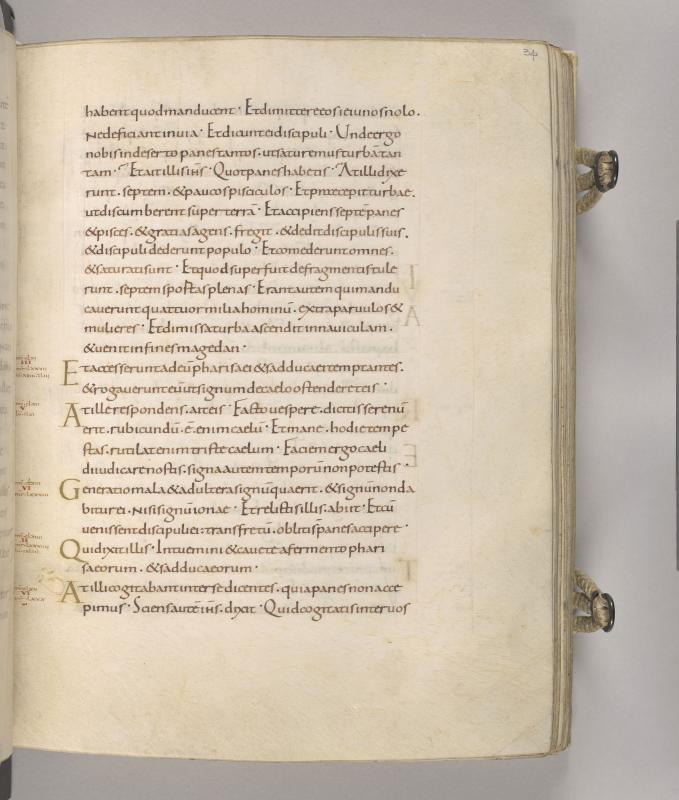 34
habent quod manducent · Et dimittere eos ieiunos nolo .
Ne deficiant in uia · Et dicunt ei discipuli · Unde ergo
nobis in deserto panes tantos . ut saturemus turbā tan
tam · Et ait illis iħs · Quot panes habetis · At illi dixe
runt . septem . & paucos pisciculos · Et praecepit turbae .
ut discumberent super terrā · Et accipiens septē panes
& pisces . & gratias agens . fregit . & dedit discipulis suis .
& discipuli dederunt populo · Et comederunt omnes .
& saturati sunt · Et quod superfuit de fragmentis tule
runt . septem sportas plenas · Erant autem qui mandu
cauerunt quattuor milia hominū . extra paruulos &
mulieres · Et dimissa turba ascendit in nauiculam .
& uenit in fines magedan ·
Et accesserunt ad eū pharisaei & sadducaei temptantes .
& rogauerunt eū ut signum de caelo ostenderet eis ·
At ille respondens . ait eis · Facto uespere . dicitis serenū
erit . rubicundū . ē . enim caelū · Et mane . hodie tempe
stas . rutilat enim triste caelum · Faciem ergo caeli
diiudicare nostis . signa autem temporū non potestis ·
Generatio mala & adultera signū quaerit . & signū non da
bitur ei . Nisi signū ionae · Et relictis illis . abiit · Et cū
uenissent discipuli ei: trans fretū . obliti sē panes accipere ·
Qui dixit illis · Intuemini & cauete a fermento phari
saeorum . & sadducaeorum ·
At illi cogitabant inter se dicentes . quia panes non acce
pimus · Sciens autē iħs . dixit · Quid cogitatis inter uos